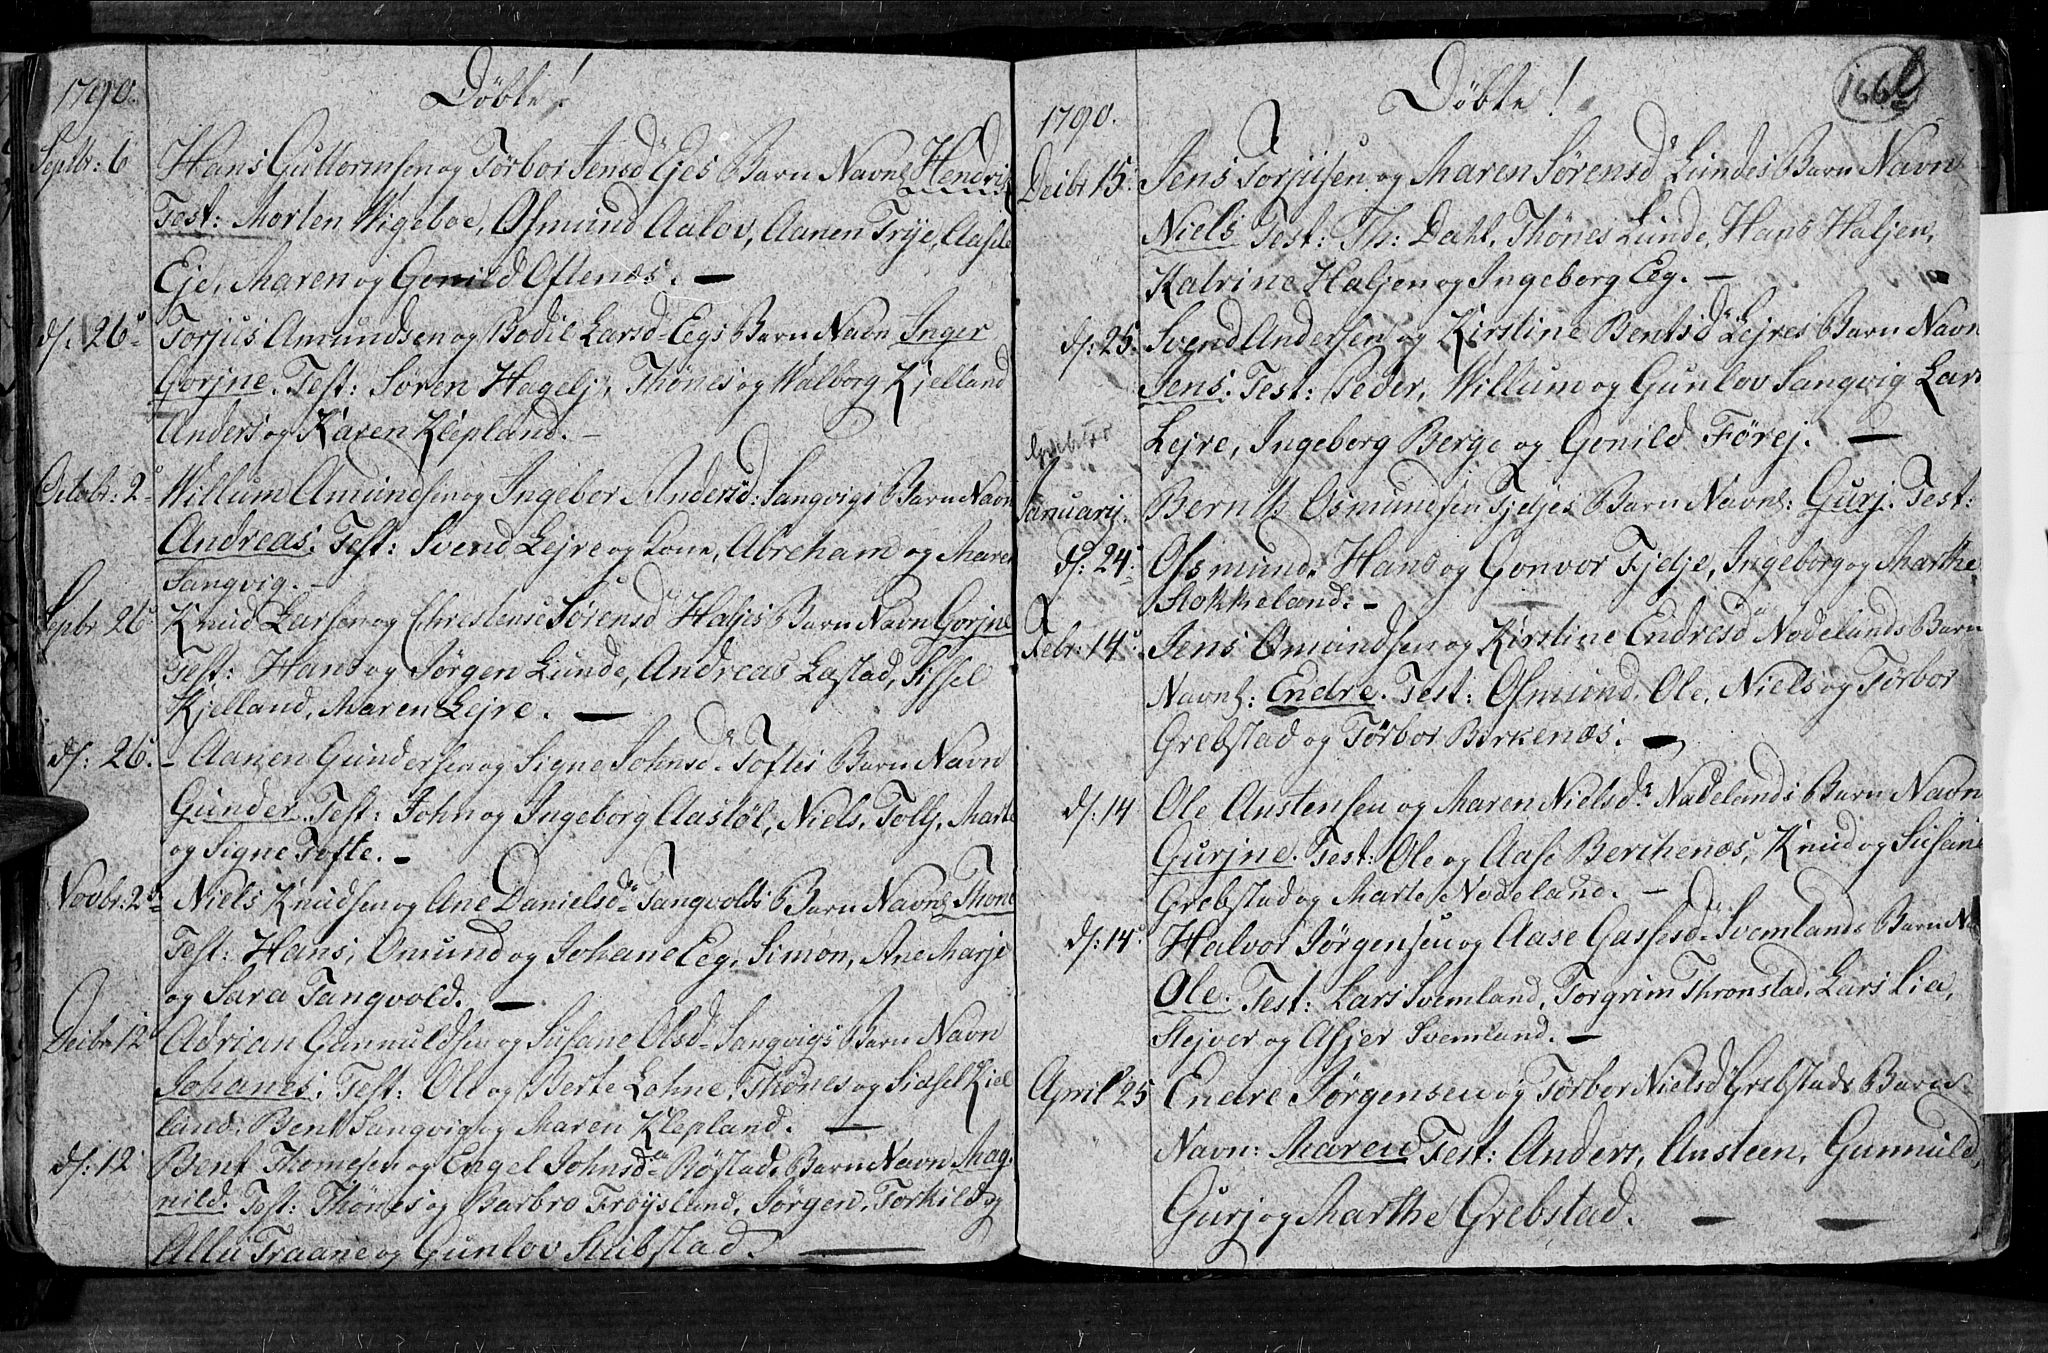 1790.
Døbte!
Septbr: 6
Hans Guttormsen og Tørbor Jensd Ejes Barn Navnl: Hendrik
Test: Morten Wigeboe, Osmund Aalov, Aanen Trye, Aasele
Eje, Maren og Gonild Oftenæs. —
d/: 26
Torjus Amundsen og Bodil Larsd Eegs Barn Navn Inger
Gorjne. Test: Søren Hagelj, Thønes og Walborg Kjelland
Anders og Karen Klepland. —
Octobr: 2
Willum Amundsen og Ingebor Andersd: Sangvigs Barn Navn
Andreas. Test: Svend Lejre og Kone, Abreham og Maren
Sangvig. —
Sepbr 26
Knud Larsen og Chrestense Sørensd Haljes Barn Navn Gorjne
Test: Hans og Jørgen Lunde, Andreas Lastad, Sissel
Kjelland, Maren Lejre. —
d/: 26.
— Aanen Gundersen og Signe Johnsd Toftes Barn Navn
Gunder. Test: John og Ingeborg Aasløl, Niels, Marte
og Signe Tofte. —
Novbr: 2
Niels Knudsen og Ane Danielsd Tangvolds Barn Navnl Thone
Test: Hans, Omund og Johane Eeg, Simon, Ane Marje
og Sara Tangvold. —
Decbr 12
Adrian Gunnuldsen og Susane Olsd Sangvigs Barn Navn
Johanes; Test: Ole og Berte Lohne, Thønes og Sidsel Kiel
land, Bent Sangvig og Maren Klepland. —
d/: 12
Bent Thomesen og Engel Johnsd Røstads Barn Navn Mag
nild. Test: Thønes og Barbro Frøysland, Jørgen, Torkild og
Traane og Gunlov Stubstad. —
166
1790.
Døbte!
Decbr 15.
Jens Torjusen og Maren Sørensd Lundes Barn Navn
Niels Test: Th: Dahl, Thønes Lunde, Hans Haljen,
Katrine Haljen og Ingeborg Eeg. —
d/: 25.
Svend Andersen og Kirstine Bentsd Lejres Barn Navn
Jens. Test: Peder, Willum og Gunlov Sangvig Lars
Lejre, Ingeborg Berge og Gonild Førej. —
Januarij.
d/: 24
Bernth Osmundsen Fjeljes Barn Navnl: Gurj. Test:
Osmund, Hans og Gonvor Fjelje, Ingeborg og Marthe
Stokkeland. —
Febr: 14
Jens Omundsen og Kirstine Endresd Nodelands Barn
Navnl: Endre. Test: Osmund, Ole, Niels og Tørbor
Grebstad og Tørbor Birkenæs. —
d/: 14
Ole Austensen og Maren Nielsdr Nodelands Barn Navn
Gurjne. Test: Ole og Aase Berchenæs, Knud og Susane
Grebstad og Marte Nodeland. —
d/: 14
Halvor Jørgensen og Aase Gassesd Svemlands Barn
Ole. Test: Lars Svemland, Torgrim Thronstad, Lars Lia,
Stejver og Asjer Svemland. —
April 25
Endre Jørgensen og Tørbor Nielsd Grebstads Barn
Navn: Maren Test: Anders, Austeen, Gunnuld,
Gurj og Marthe Grebstad. — —